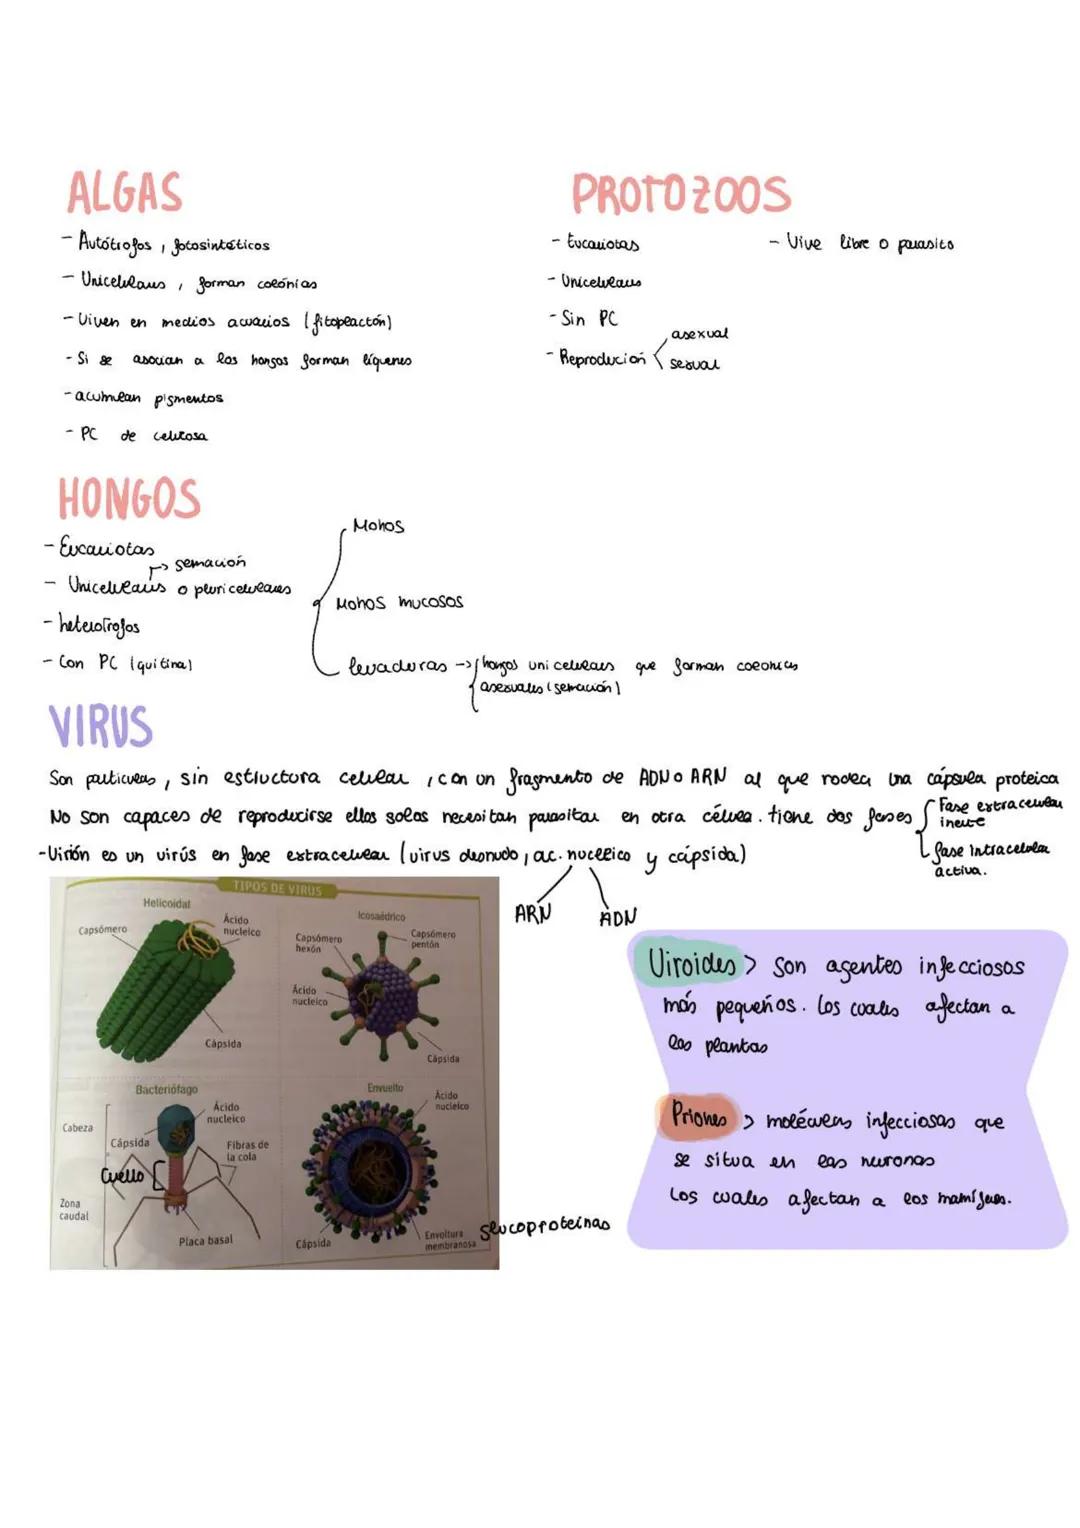 ALGAS
- Autótrofos, fotosintéticos
- Unicelulares, forman colónias
- Viven en medios acuarios (fitoplactón)
- Si se asocian a los hongos forman líquenes
- acumulan pigmentos
- PC de celulosa
PROTOZOOS
- Eucariotas
- Unicelulares
- Sin PC
- Reproducción
asexual
sexual
- Vive libre o parasito
HONGOS
- Eucariotas
- Unicelulares o pluricelulares
gemación
- heterotrofos
- Con PC (quitina)
Mohos
Mohos mucosos
levaduras → hongos unicelulares que forman colonias
asexuales (gemación)
VIRUS
Son particulas, sin estructura celular, con un fragmento de ADN o ARN al que rodea una cápsula proteica
No son capaces de reproducirse ellos solos necesitan parasitar en otra célula. tiene dos fases
Fase extracelular
inerte
fase intracelular
activa.
- Virión es un virús en fase extracelular (virus desnudo, ac. nucleico y cápsida)
ARN
ADN
TIPOS DE VIRUS
Helicoidal
Capsómero
Ácido
nucleico
Cápsida
Icosaédrico
Capsómero
hexón
Capsómero
pentón
Ácido
nucleico
Cápsida
Bacteriófago
Cabeza
Cápsida
Ácido
nucleico
Fibras de
la cola
Cuello
Zona
caudal
Placa basal
Envuelto
Ácido
nucleico
Cápsida
Envoltura
membranosa
glucoproteinas
Viroides > son agentes infecciosos
más pequeños. Los cuales afectan a
las plantas
Priones > moléculas infecciosas que
se situa en las neuronas
Los cuales afectan a los mamíferos.